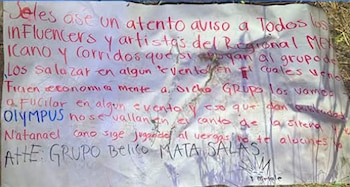 Se les ase un atento aviso a Todos los
influencers y artistas del Regional MEX
icano y corridos que si apoyan al grupo de
Los Salazar en algun evento en cuales
Financi economia mente a dicho GRUPO los vamos
a Fucilar en algun evento y eso que dan
OLYMPUS no se vallan en el canto de la sirena
Natanael Cano sige jugando al vergas no te alucines
ATTE: GRUPO Belico MATA SALAS